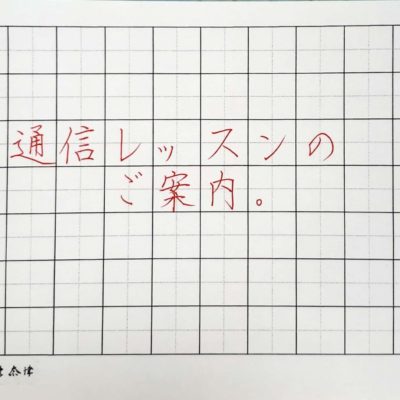 通信レッスンの
ご案内。